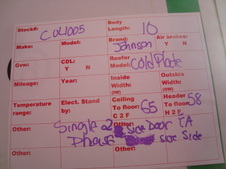 Stock#: CUL1005
Body Length: 10
Make:
Model:
Brand: Johnson
Air
Gvw:
CDL: Y N
Reefer Model: Cold Plate
Y N
Mileage:
Year:
Inside Width:
Outside Width:
Temperature range:
Elect. Stand by:
Ceiling To floor: 65
Header To floor: 58
C 2 F
H 2 F
Other:
Single 2 Side Door CA
Phase Side Side
Other:
Other: